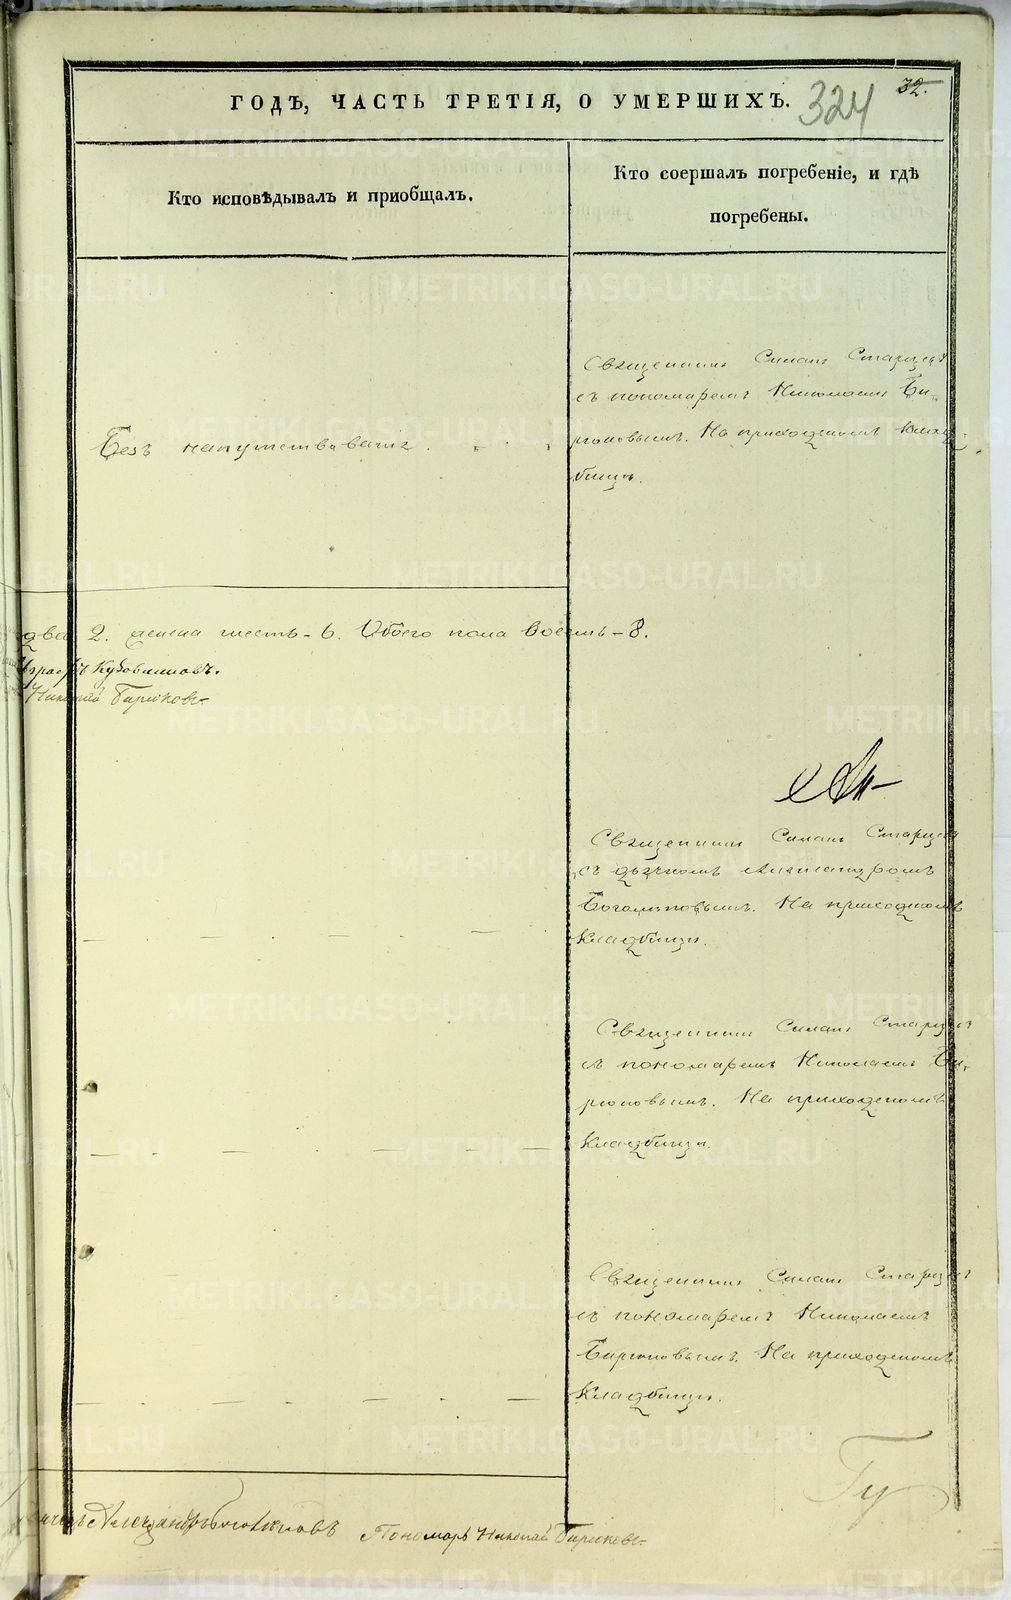 ГОДЪ, ЧАСТЬ ТРЕТІЯ, О УМЕРШИХЪ.
324
32.
Кто исповѣдывалъ и пріобщалъ.
Кто соершалъ погребеніе, и гдѣ
погребены.
Священникъ Симонъ Старцевъ
съ пономаремъ Николаемъ Би-
рюковымъ. На приходскомъ клад-
бищѣ.
Безъ напутствованія.
два 2. женска шесть-6. Обоего пола восемь-8.
Кузовниковъ.
Николай Бирюковъ
Священникъ Симонъ Старцевъ
съ дьячкомъ Александромъ
Боголѣповымъ. На приходскомъ
Кладбищѣ.
Священникъ Симонъ Старцевъ
съ пономаремъ Николаемъ Би-
рюковымъ. На приходскомъ
Кладбищѣ.
Священникъ Симонъ Старцевъ
съ пономаремъ Николаемъ
Бирюковымъ. На приходскомъ
Кладбищѣ.
Гу
Александръ Боголѣповъ Пономарь Николай Бирюковъ
METRIKI.GASO-URAL.RU